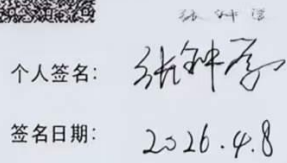 个人签名: 张钟
签名日期: 2026.4.8